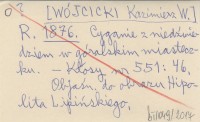 o? [WÓJCICKI Kazimierz W.]
R. 1876. Cyganie z niedźwie-
dziem w góralskim miastecz-
ku. — Kłosy nr 551: 46.
Objaśn. do obrazu Hipo-
lita Lipińskiego.